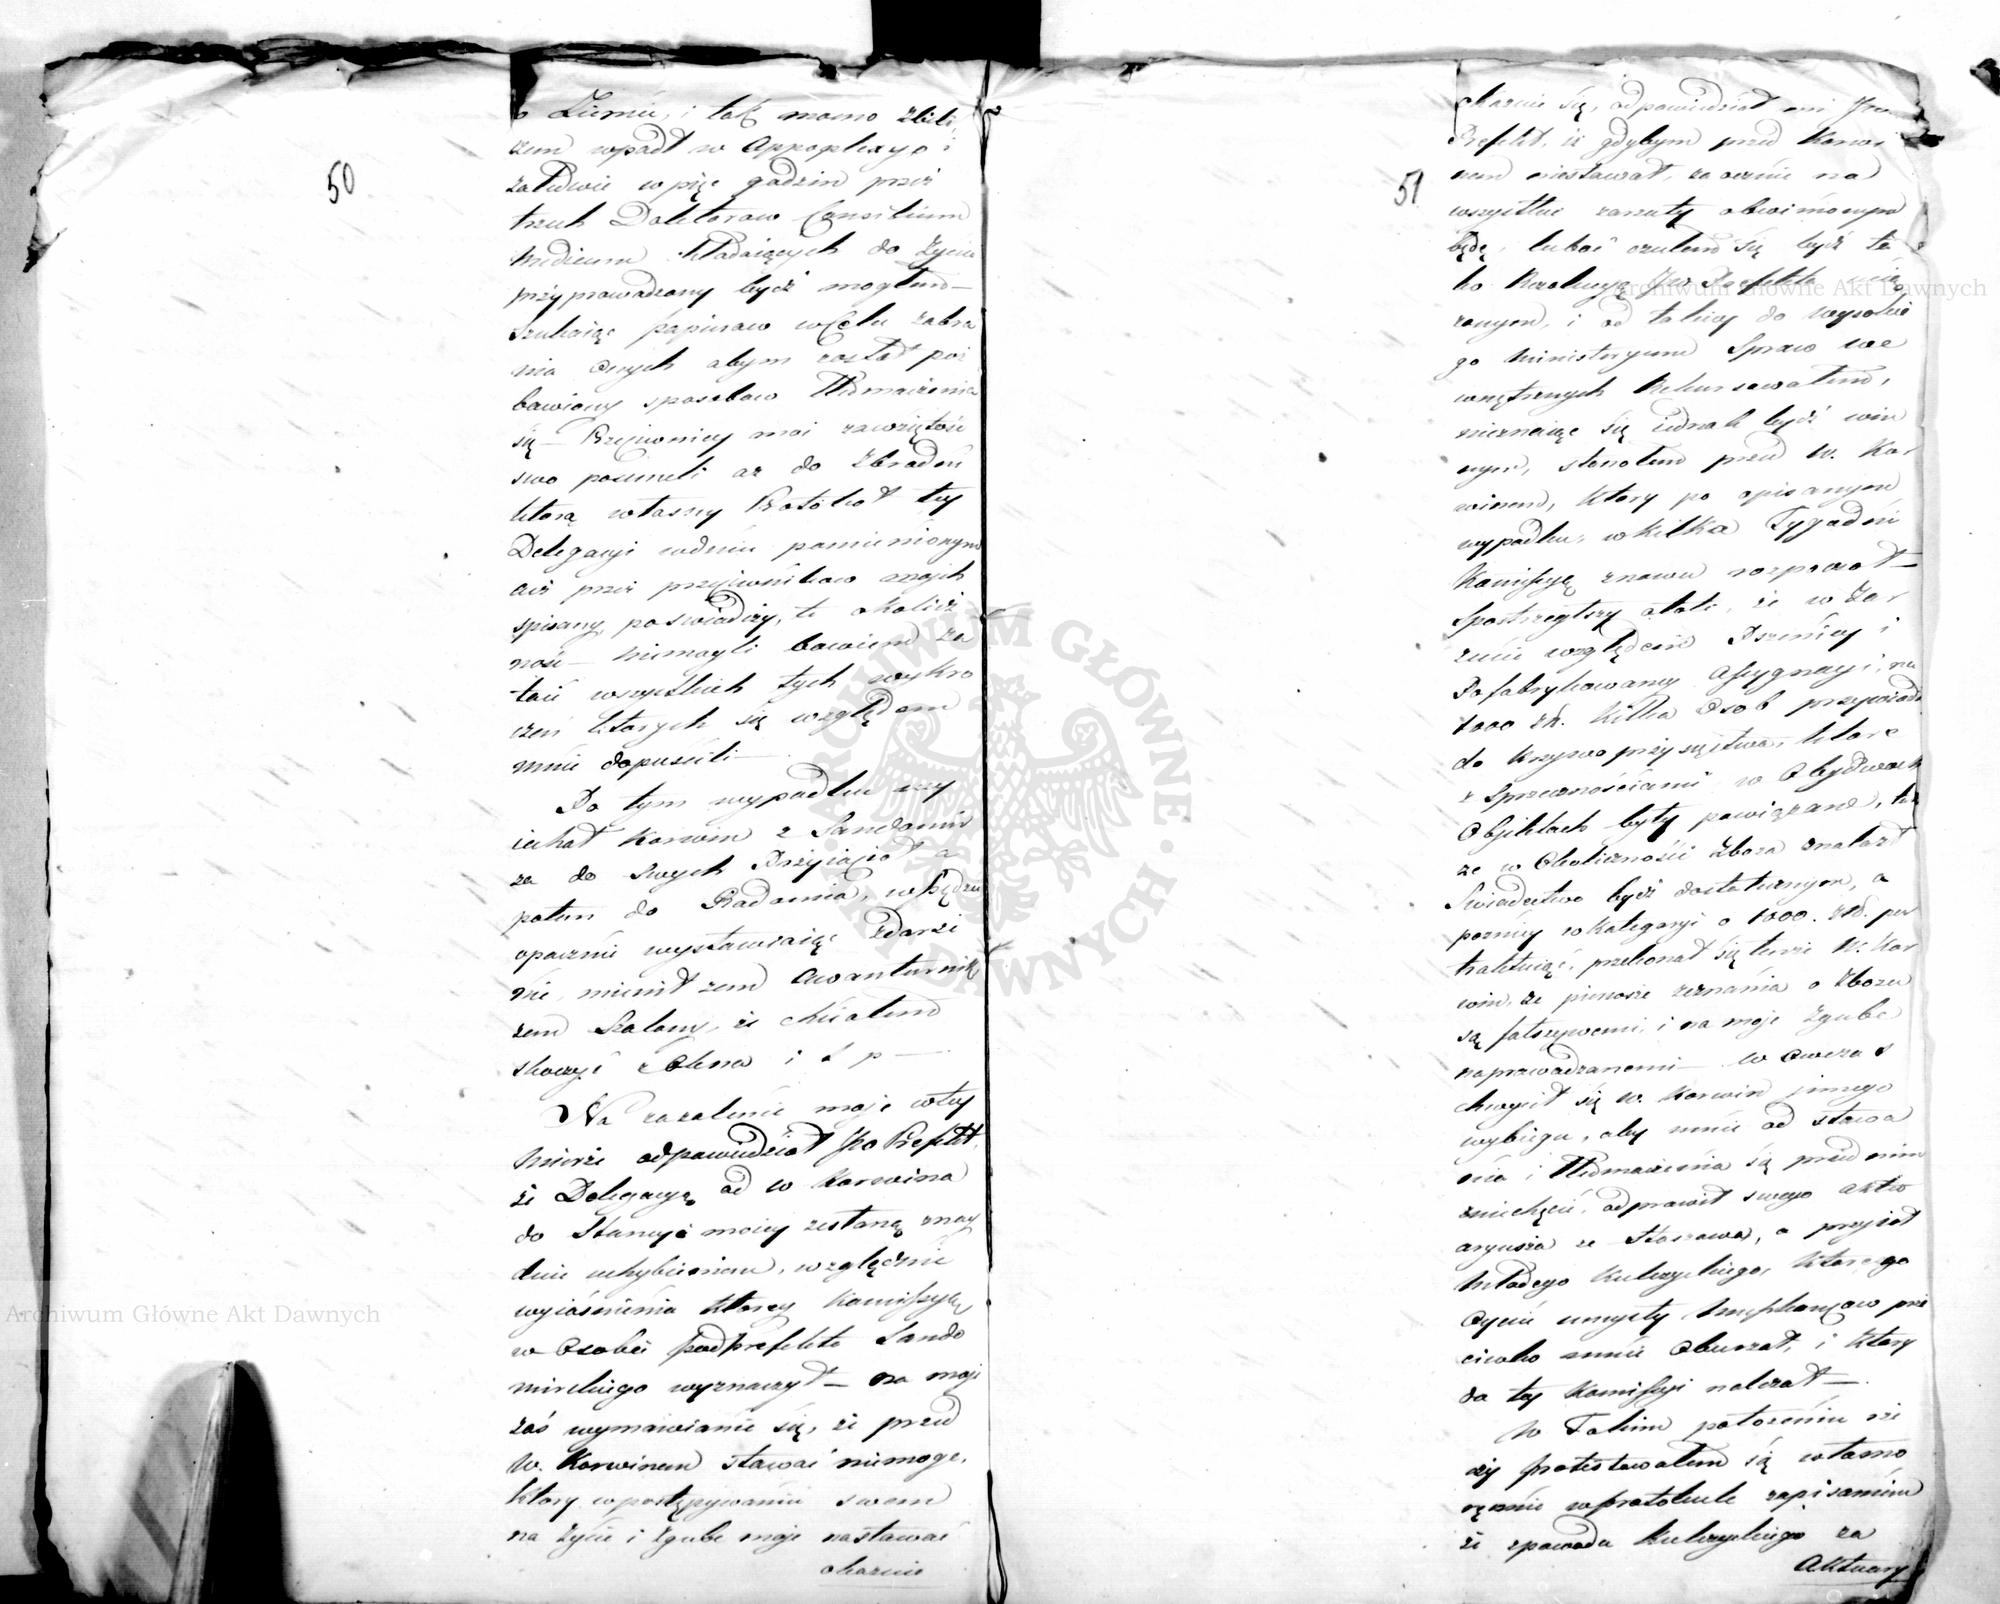 50
o Ziemię, i tak mocno zbili
żem wpadł w Appoplexyą i
zaledwie w pięc godzin przez
trzech Doktorow Consilium
Medicum składaiących do życia
przyprowadzony bydź mogłem —
Szukaiąc papierow w Celu zabra
nia onych abym został poz
bawiony sposobow tłomaczenia
się — Przeciwnicy moi zawziętość
swo posuneli aż do Zbrodni
ktorą własny Protokoł tey
Delegacyi w dniu pomienionym
aiż przez przeciwnikow moich
spisany, poswiadczy, te okolicz
ność — niemogli bowiem za
taić wszystkich tych wykro
czeń ktorych się względem
mnie dopuscili —
Po tym wypadku wy
iechał Korwin z Sandomirz
za do Swych Przyiacioł a
potem do Radomia, w kędzie
opacznie wystawiaiąc Zdarze
nie, mienił żem Awanturnik,
żem Szalony, że chciałem
skoczyć z Okna i t p —
Na zazalenie moje w tey
mierze odpowiedział Jko Prefekt,
że Delegacyą od W Korwina
do Stancyi moiey zesłaną znay
duie uchybieniem, względnie
wyiasnienia ktorey Kommissyą
w Osobie podprefekta Sando
mirskiego wyznaczył — na moje
zaś wymawianie się, że przed
W. Korwinem stawać niemogę,
ktory w postępywaniu swem
na życie i zgubę moje nastawać
okazuie
51
okazuie się, odpowiedział mi
Prefekt, iż gdybym przed Korwi
nem niestawał, zaocznie na
wszystkie zarzuty obwinionym
będę, luboć czułem się bydź tą
ko Rezolucyą JW Prefekta uciąz
zonym, i od takiey do Wysokie
go Ministeryum Spraw we
wnętrznych Rekursowałem,
nieznaiąc się iednak bydź win
nym, stanołem przed W. Kor
winem, Ktory po opisanym
wypadku, w kilka Tygodni
Kommissyą znowu rozpoczoł —
Spostrzegłszy atoli, że w Zar
zucie względem Pszenicy i
Pofabrykowaney Assygnacyi, na
1000 zł. Kilka Osob przywiodł
do Krzywoprzysięstwa, ktore
z Sprzecznościami w Obydwoch
Objektach były powiązane,
że w Okoliczności Zboza znalazł
Swiadectwo bydź dostatecznym, a
pozniey w kategoryi o 1000. złł. per
traktuiąc, przekonał się tenże W. Kor
win, że piersze zeznania o Zbozu
są fałszywemi, i na moje Zgube
naprowadzanemi — w Owczas
chwycił się W. Korwin innego
wybiegu, aby mnie od stawa
nia i tłomaczenia się przed nim
zniechęcić, odprawił swego Aktu
aryusza ze Staszowa, a przyioł
młodego Kulczyckiego, ktorego
Oyciec umysły Mieszkancow prze
ciwko mnie Oburzał, i Ktory
do tey Kommissyi nalezał —
W Takim połozeniu rze
czy protestowałem się własno
ręcznie w protokule zapisaniem
że z powodu Kulczyckiego za
Aktuary
Archiwum Główne Akt Dawnych
Archiwum Główne Akt Dawnych
ARCHIWUM GŁÓWNE · AKT DAWNYCH ·